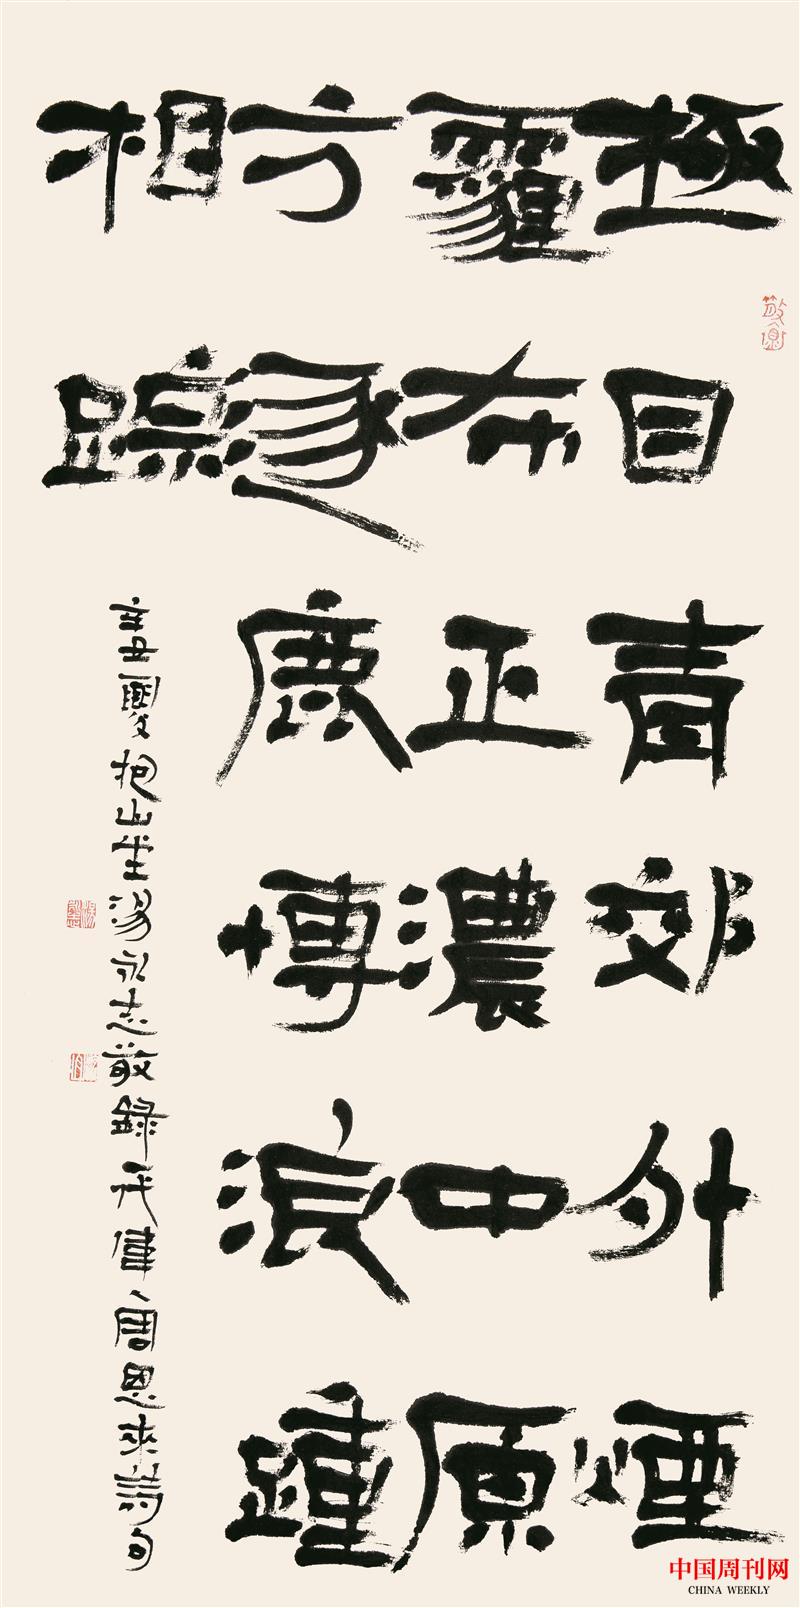 極目青郊外煙
霾布正濃中原
方逐鹿博浪踵
相踪
辛丑夏抱山湯永志敬錄周恩來詩句
中国周刊网
CHINA WEEKLY